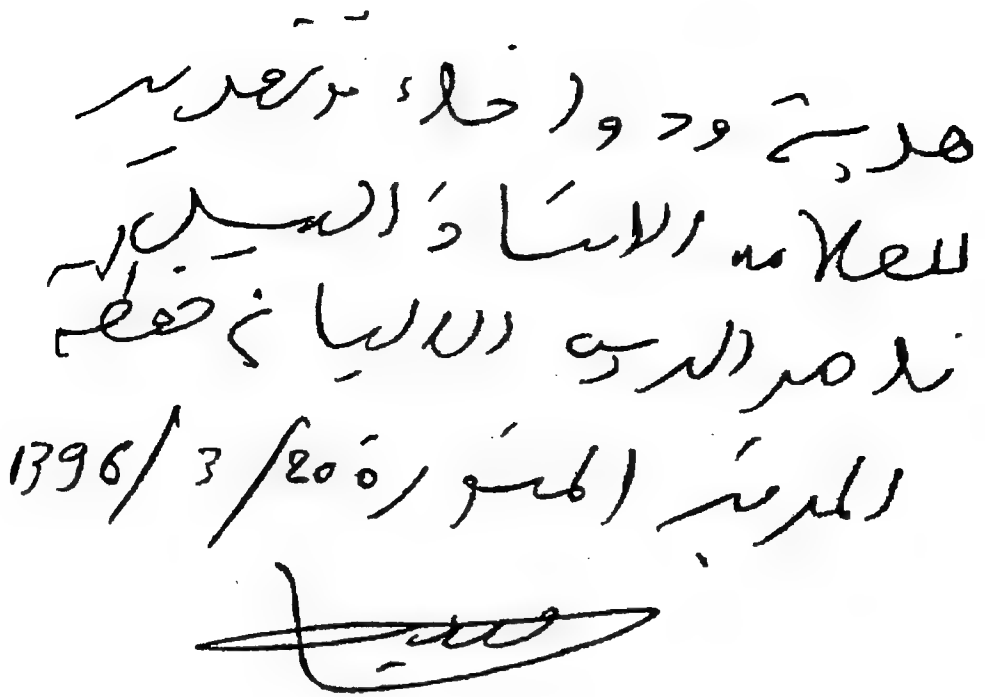 هدية ود و اخاء و تقدير
للعلامه الاستاذ الجليل
ناصر الدين الالباني حفظه الله
المدينة المنورة 20/3/1396